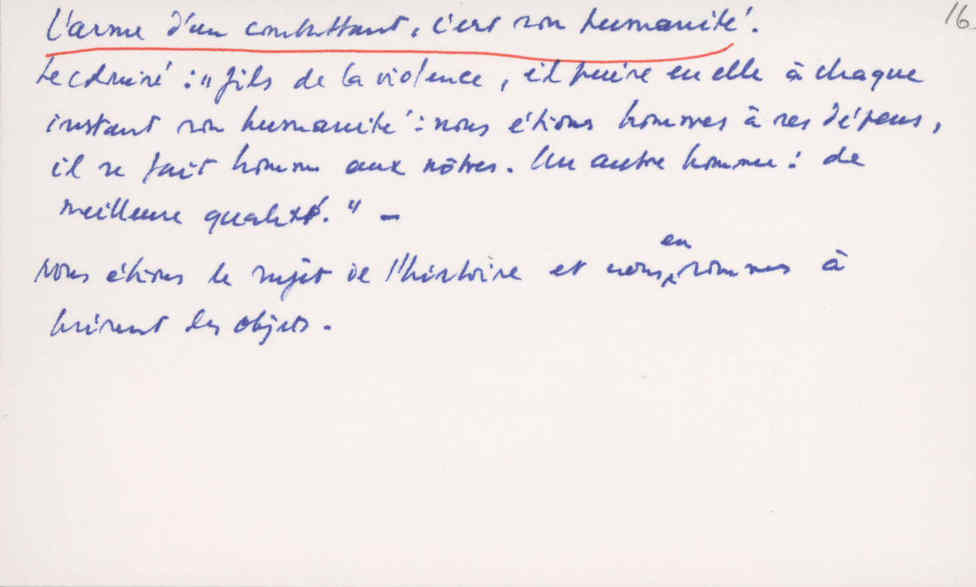 16
L'arme d'un combattant, c'est son humanité.
Le colonisé : "fils de la violence, il puise en elle à chaque
instant son humanité : nous étions hommes à ses dépens,
il se fait homme aux nôtres. Un autre homme : de
meilleure qualité." –
Nous étions le sujet de l'histoire et nous en sommes à
présent les objets.